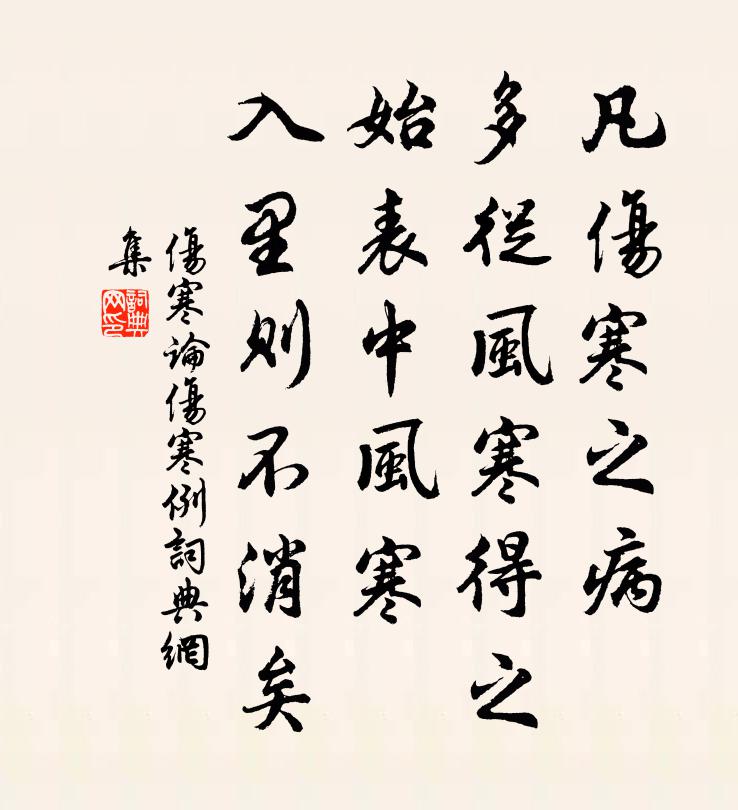 凡傷寒之病
多從風寒得之
始表中風寒
入里則不消矣
傷寒論傷寒例詞典網
集
詞典
网印